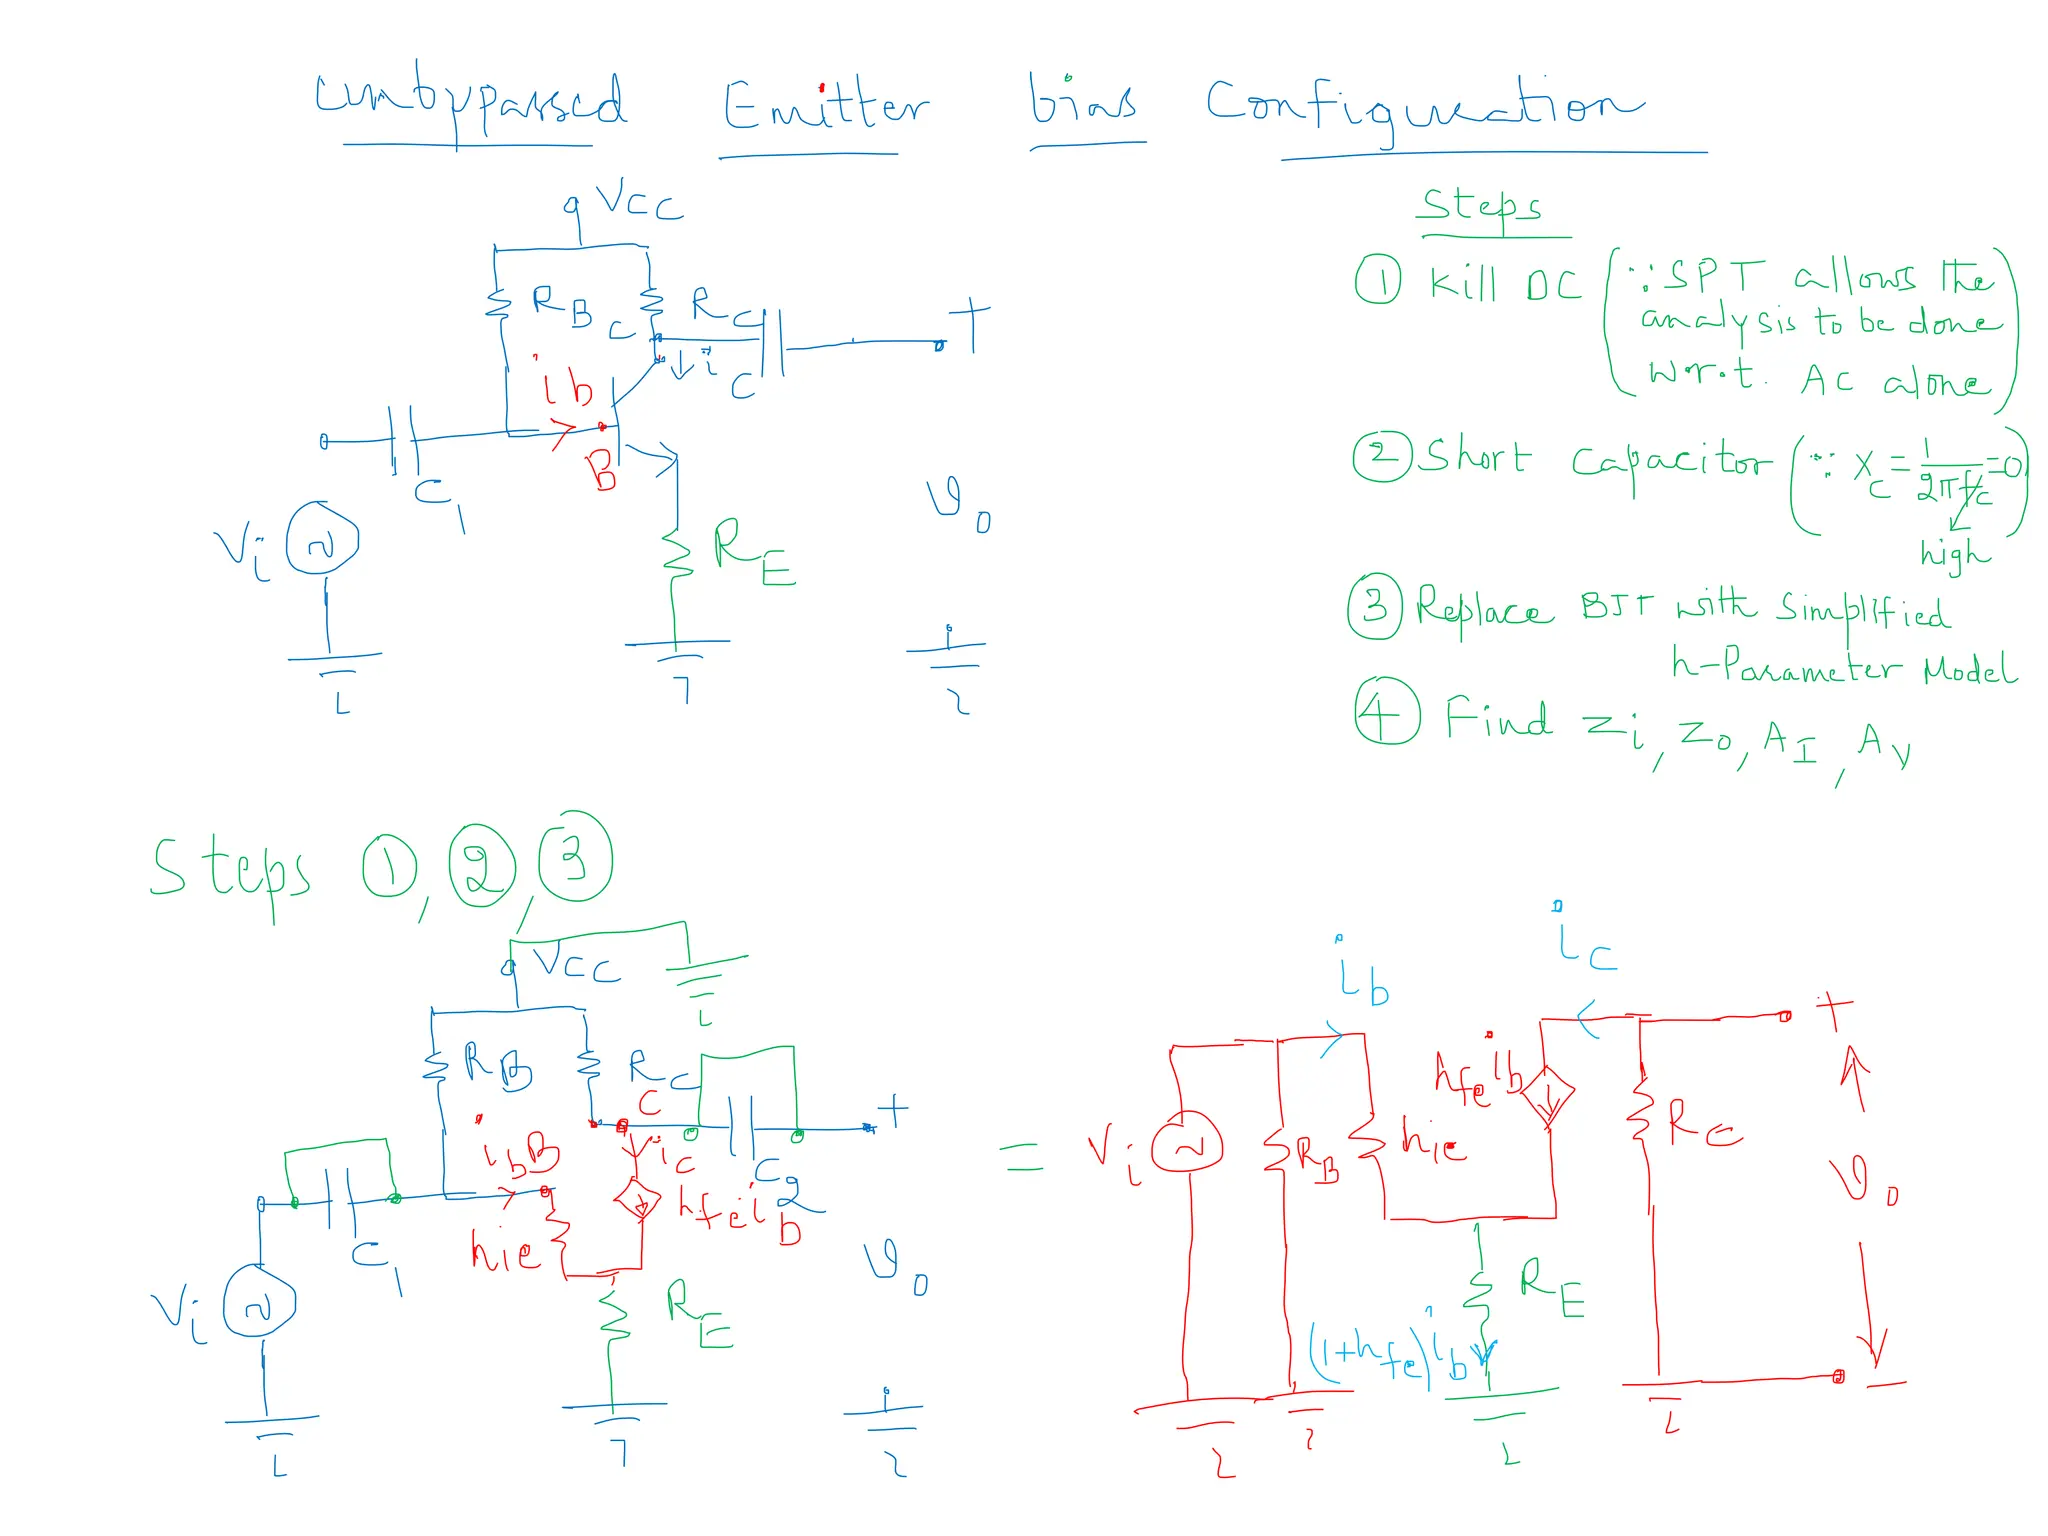 Unbypassed Emitter bias Configuration
VCC
RB
RC
C
ib
ic
B
C1
Vi
RE
+
vo
Steps
① Kill DC (∵ SPT allows the
analysis to be done
w.r.t. AC alone)
② Short Capacitor (∵ XC = 1/2πfC = 0)
high
③ Replace BJT with Simplified
h-Parameter Model
④ Find Zi, Zo, AI, AV
Steps ①, ②, ③
VCC
RB
RC
C
ib B
ic
hie
hfe ib
C1
C2
Vi
RE
+
vo
=
Vi
RB
ib
hie
hfe ib
ic
RC
RE
(1+hfe) ib
+
vo
−